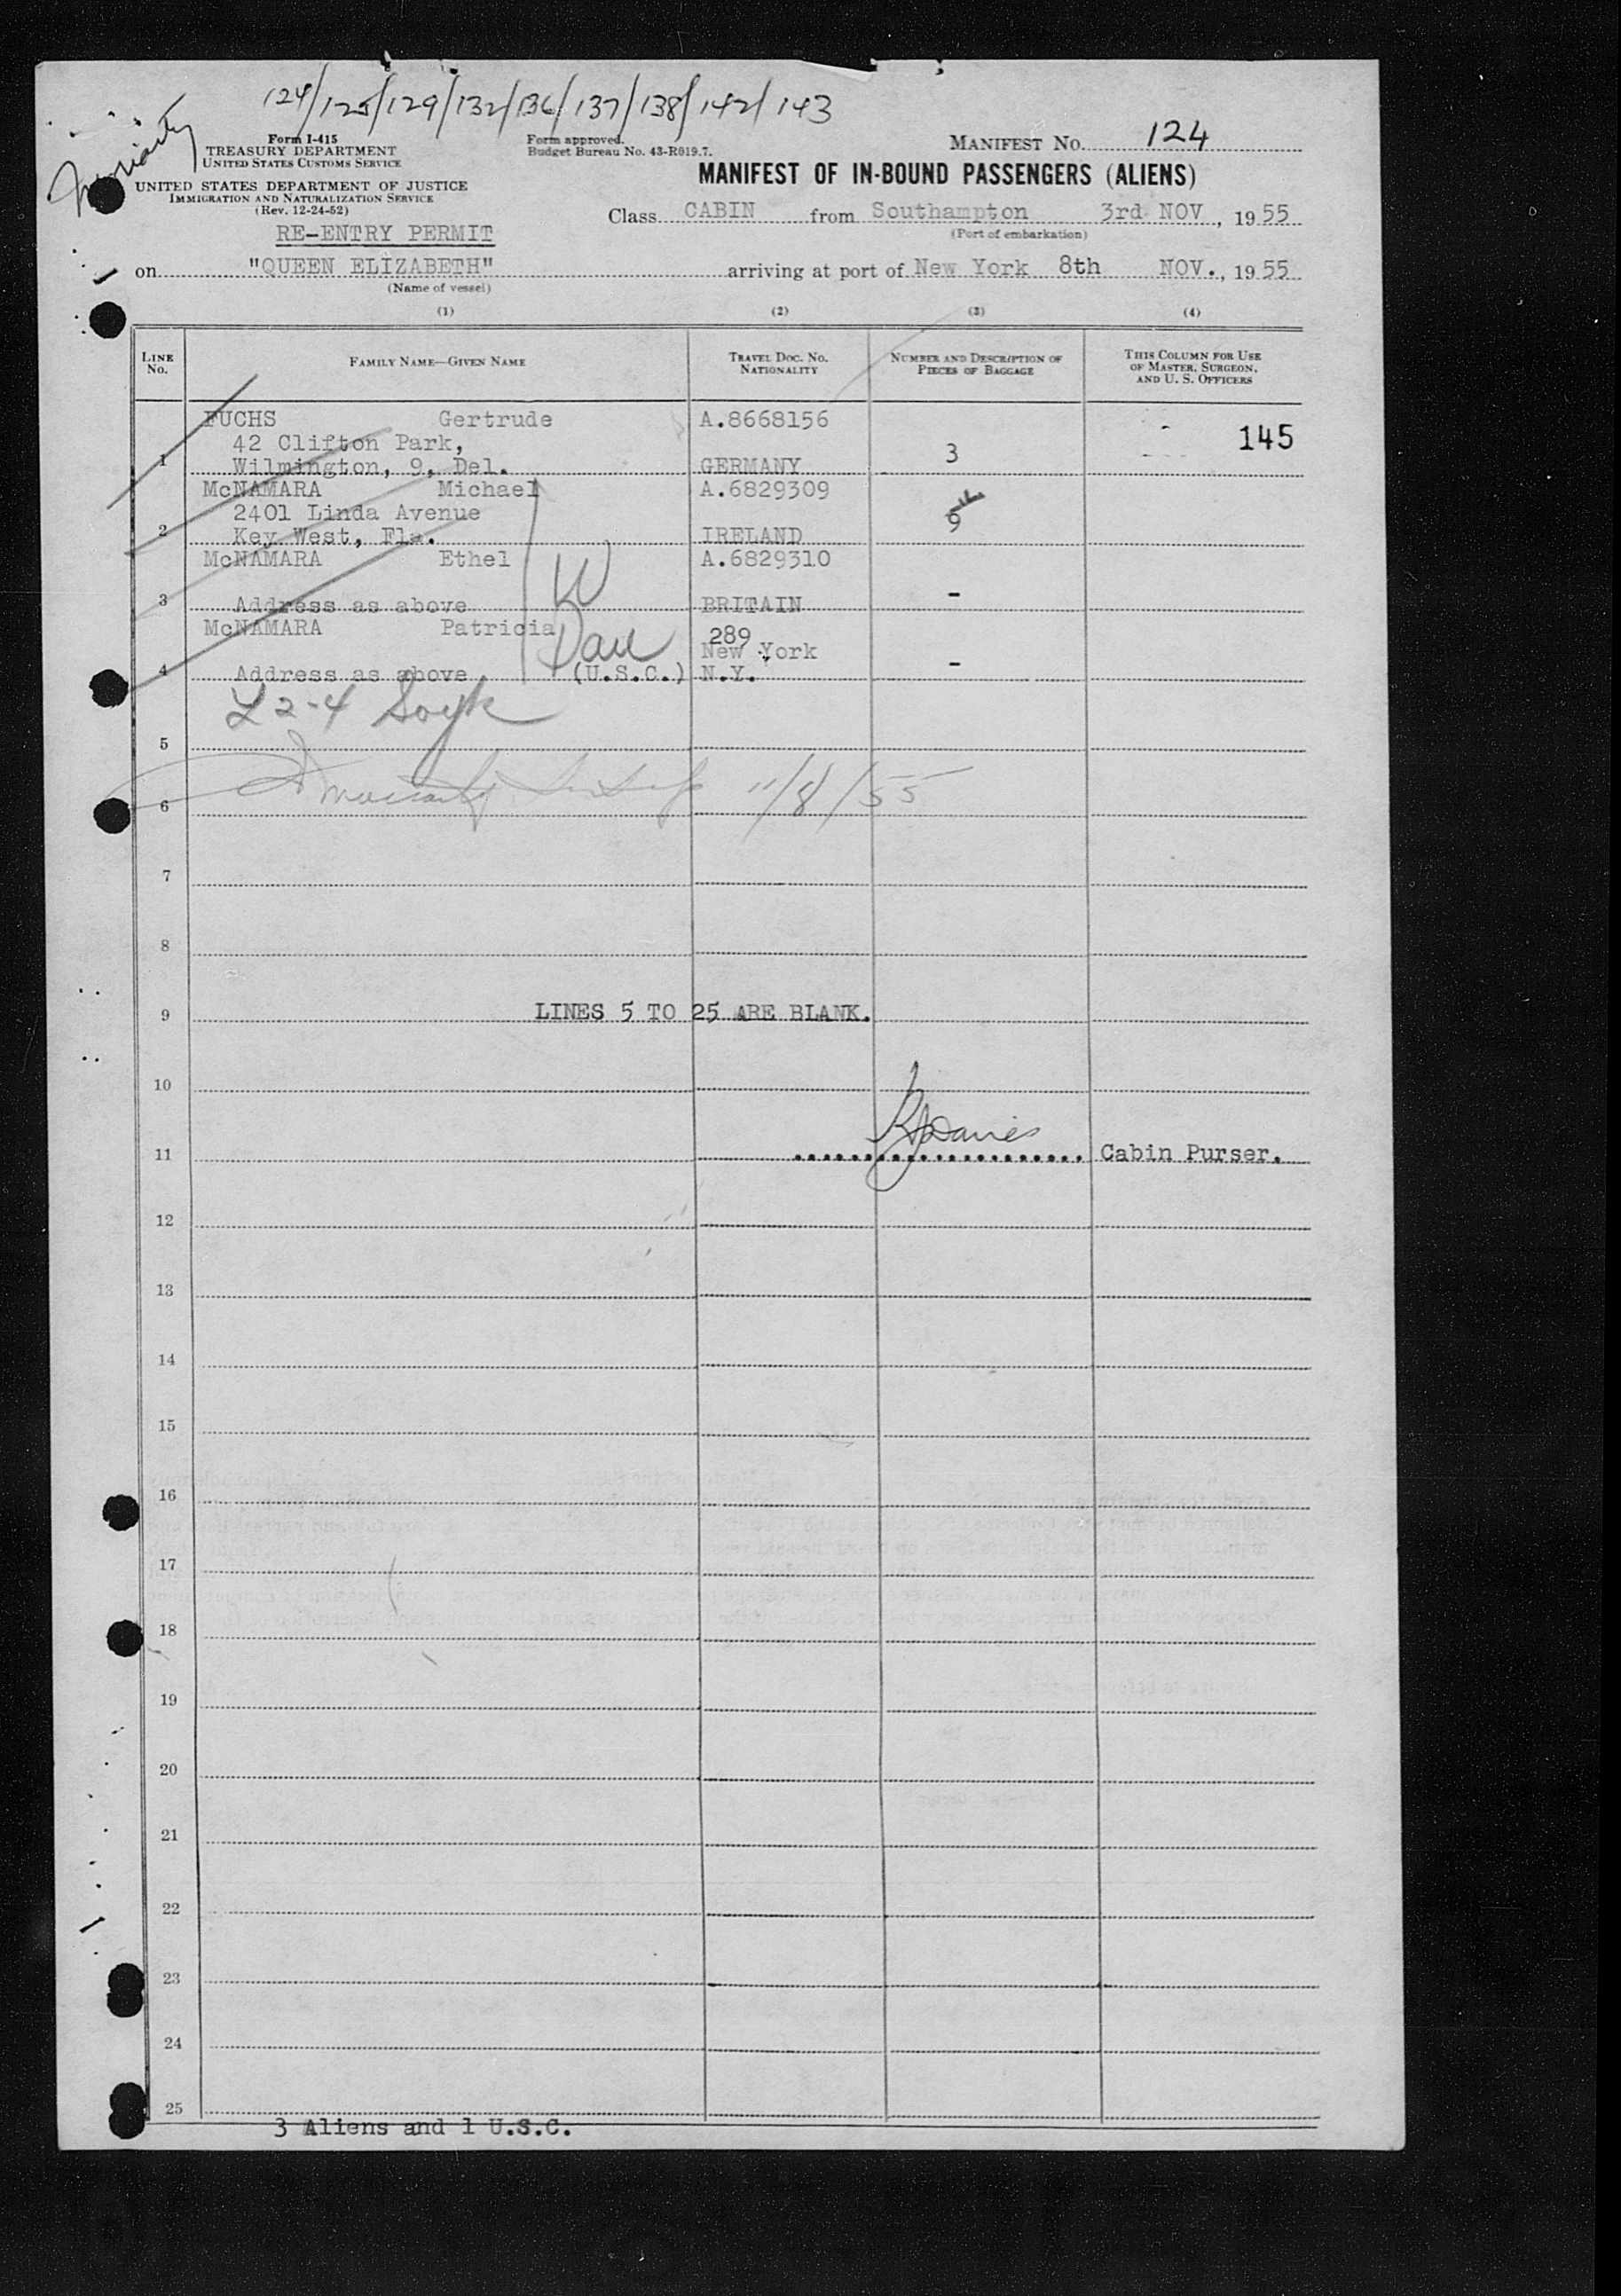 124/125/129/132/136/137/138/142/143
Moriarty
Form I-415
TREASURY DEPARTMENT
UNITED STATES CUSTOMS SERVICE
UNITED STATES DEPARTMENT OF JUSTICE
IMMIGRATION AND NATURALIZATION SERVICE
(Rev. 12-24-52)
Form approved.
Budget Bureau No. 43-R019.7.
MANIFEST No. 124
MANIFEST OF IN-BOUND PASSENGERS (ALIENS)
RE-ENTRY PERMIT
Class CABIN from Southampton 3rd NOV, 1955
(Port of embarkation)
on "QUEEN ELIZABETH" arriving at port of New York 8th NOV., 1955
(Name of vessel)
(1) (2) (3) (4)
LINE No. FAMILY NAME—GIVEN NAME TRAVEL DOC. NO. NATIONALITY NUMBER AND DESCRIPTION OF PIECES OF BAGGAGE THIS COLUMN FOR USE OF MASTER, SURGEON, AND U. S. OFFICERS
FUCHS Gertrude A.8668156
42 Clifton Park, 3 145
1 Wilmington, 9, Del. GERMANY
McNAMARA Michael A.6829309
2401 Linda Avenue 9
2 Key West, Fla. IRELAND
McNAMARA Ethel A.6829310
W
3 Address as above BRITAIN -
McNAMARA Patricia 289
Dau New York
4 Address as above (U.S.C.) N.Y. -
L 2-4
5
6 Moriarty 11/8/55
7
8
9 LINES 5 TO 25 ARE BLANK.
10
Davies
11 Cabin Purser.
12
13
14
15
16
17
18
19
20
21
22
23
24
25
3 Aliens and 1 U.S.C.